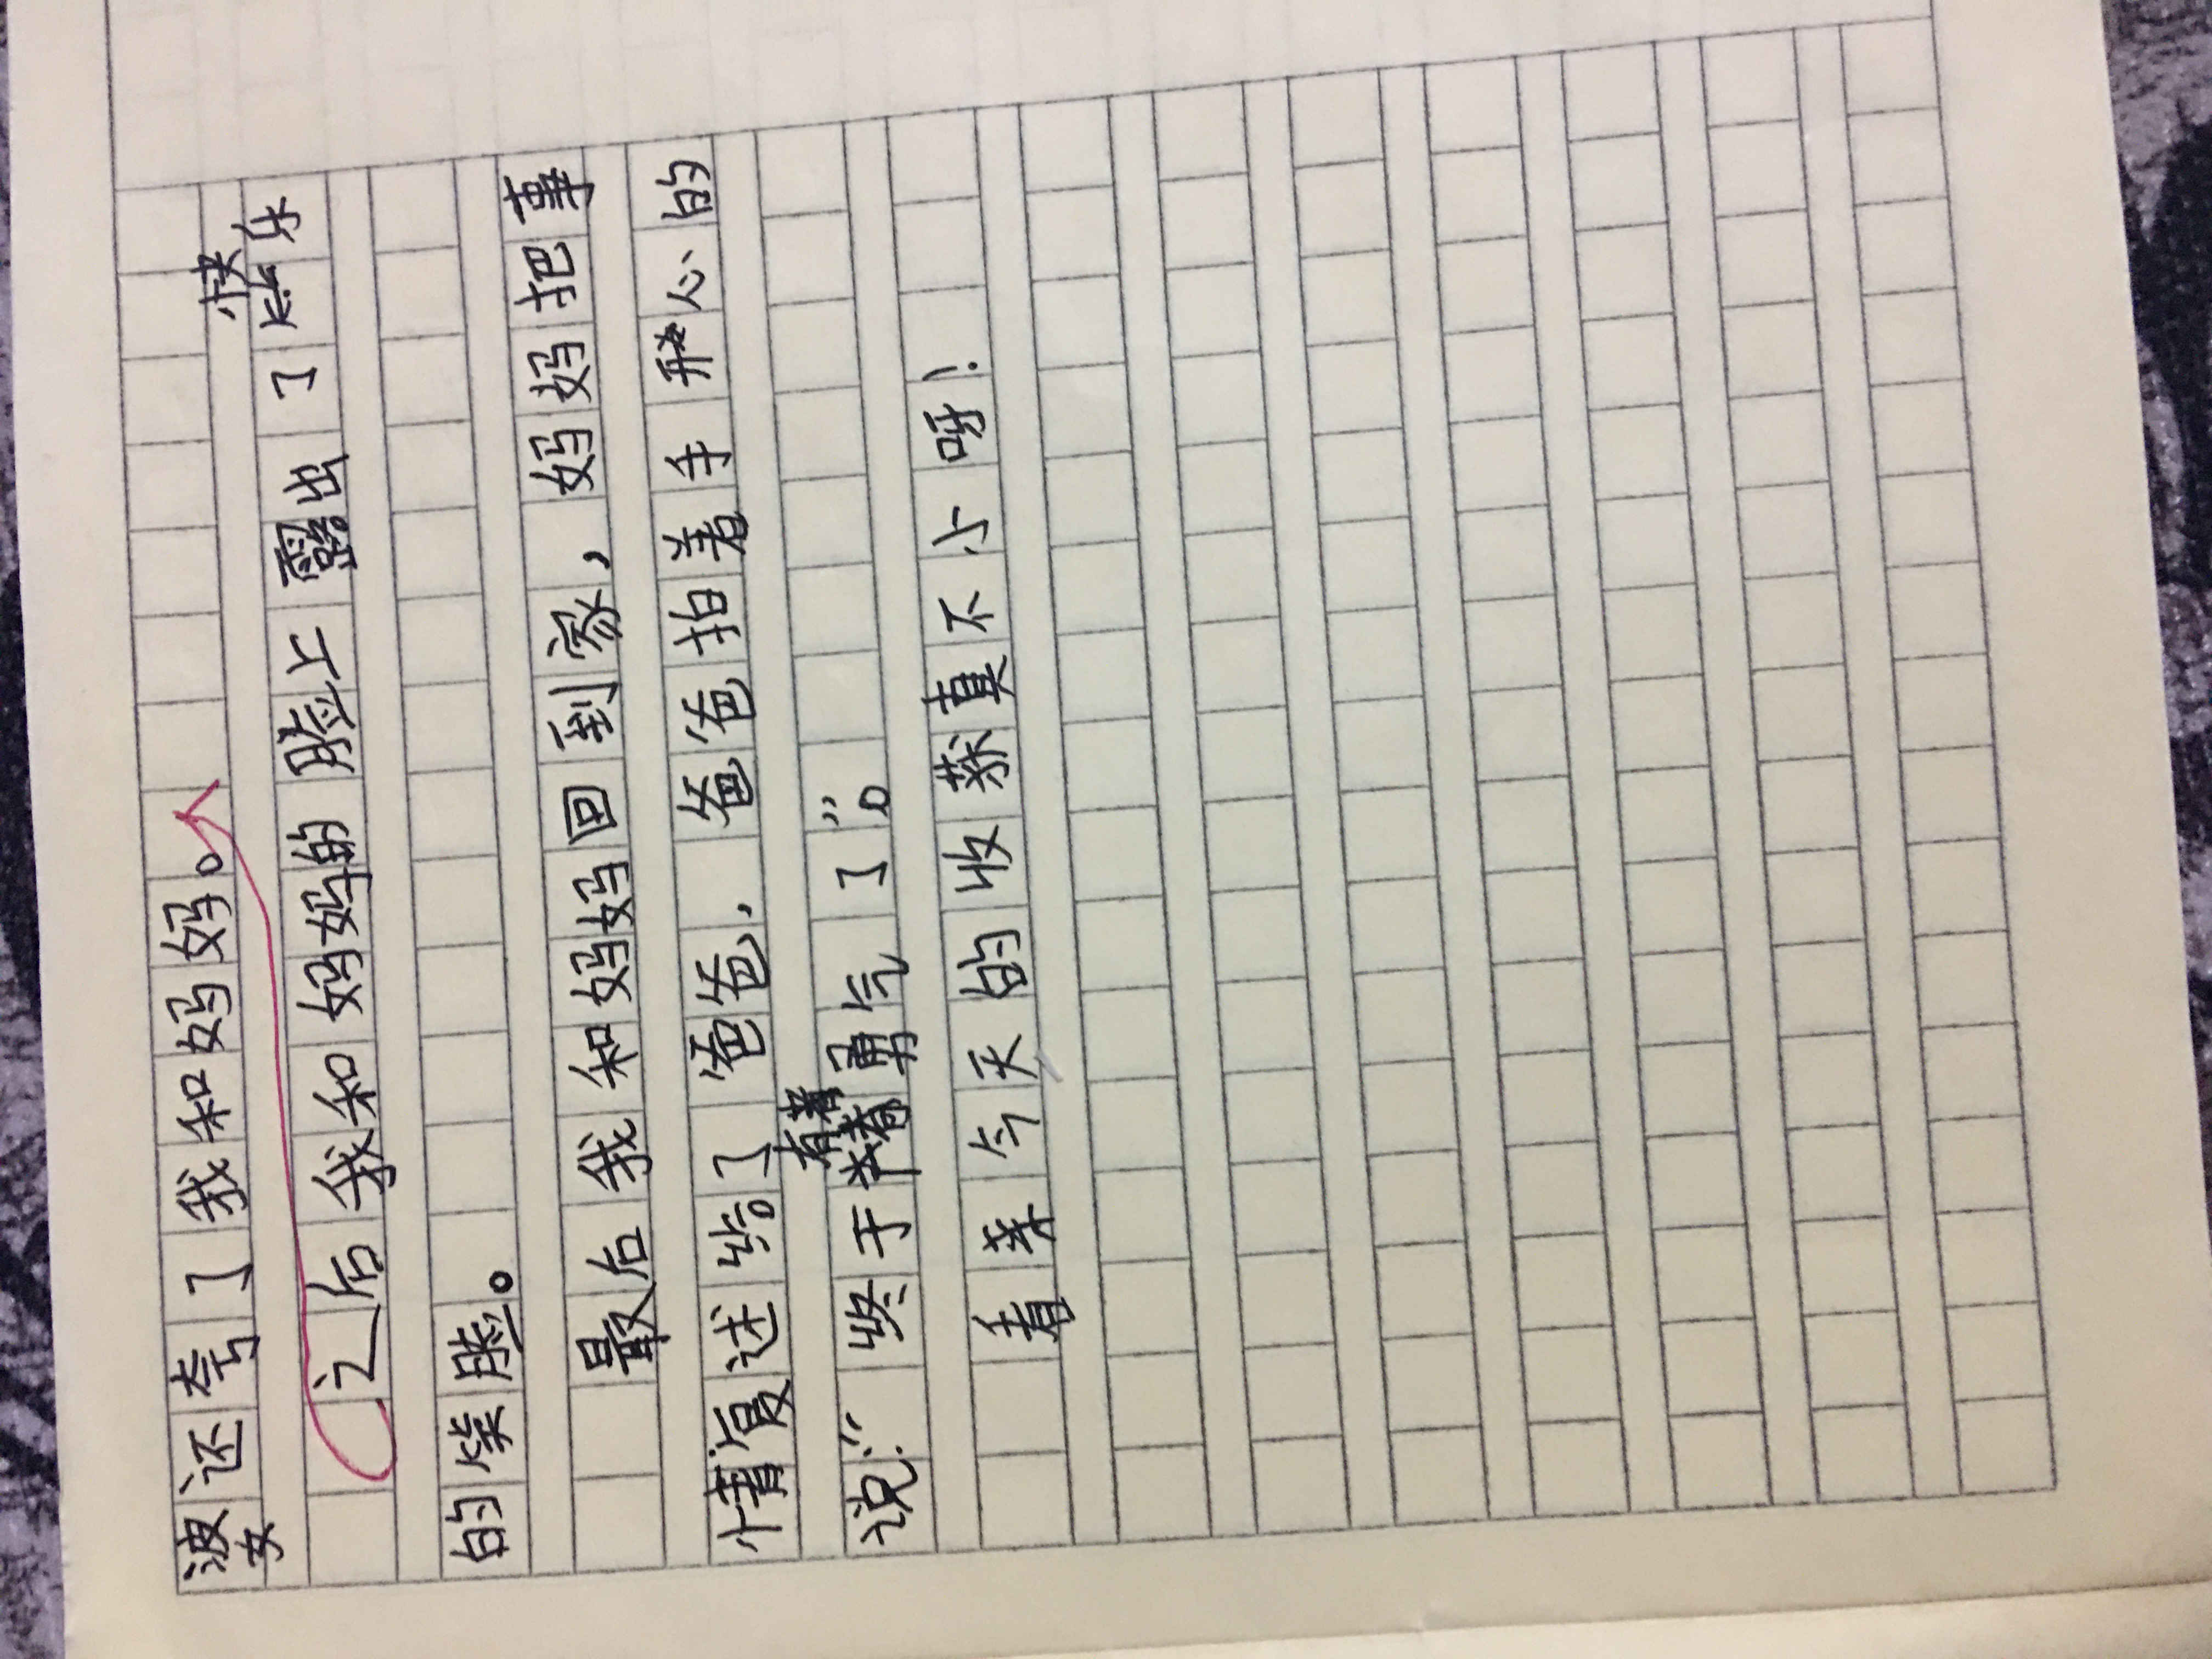 婆还夸了我和妈妈。
之后我和妈妈的脸上露出了快乐
的笑脸。
最后我和妈妈回到家，妈妈把事
情复述给了爸爸，爸爸拍着手开心的
说：“终于有着勇气了”。
看来今天的收获真不小呀！